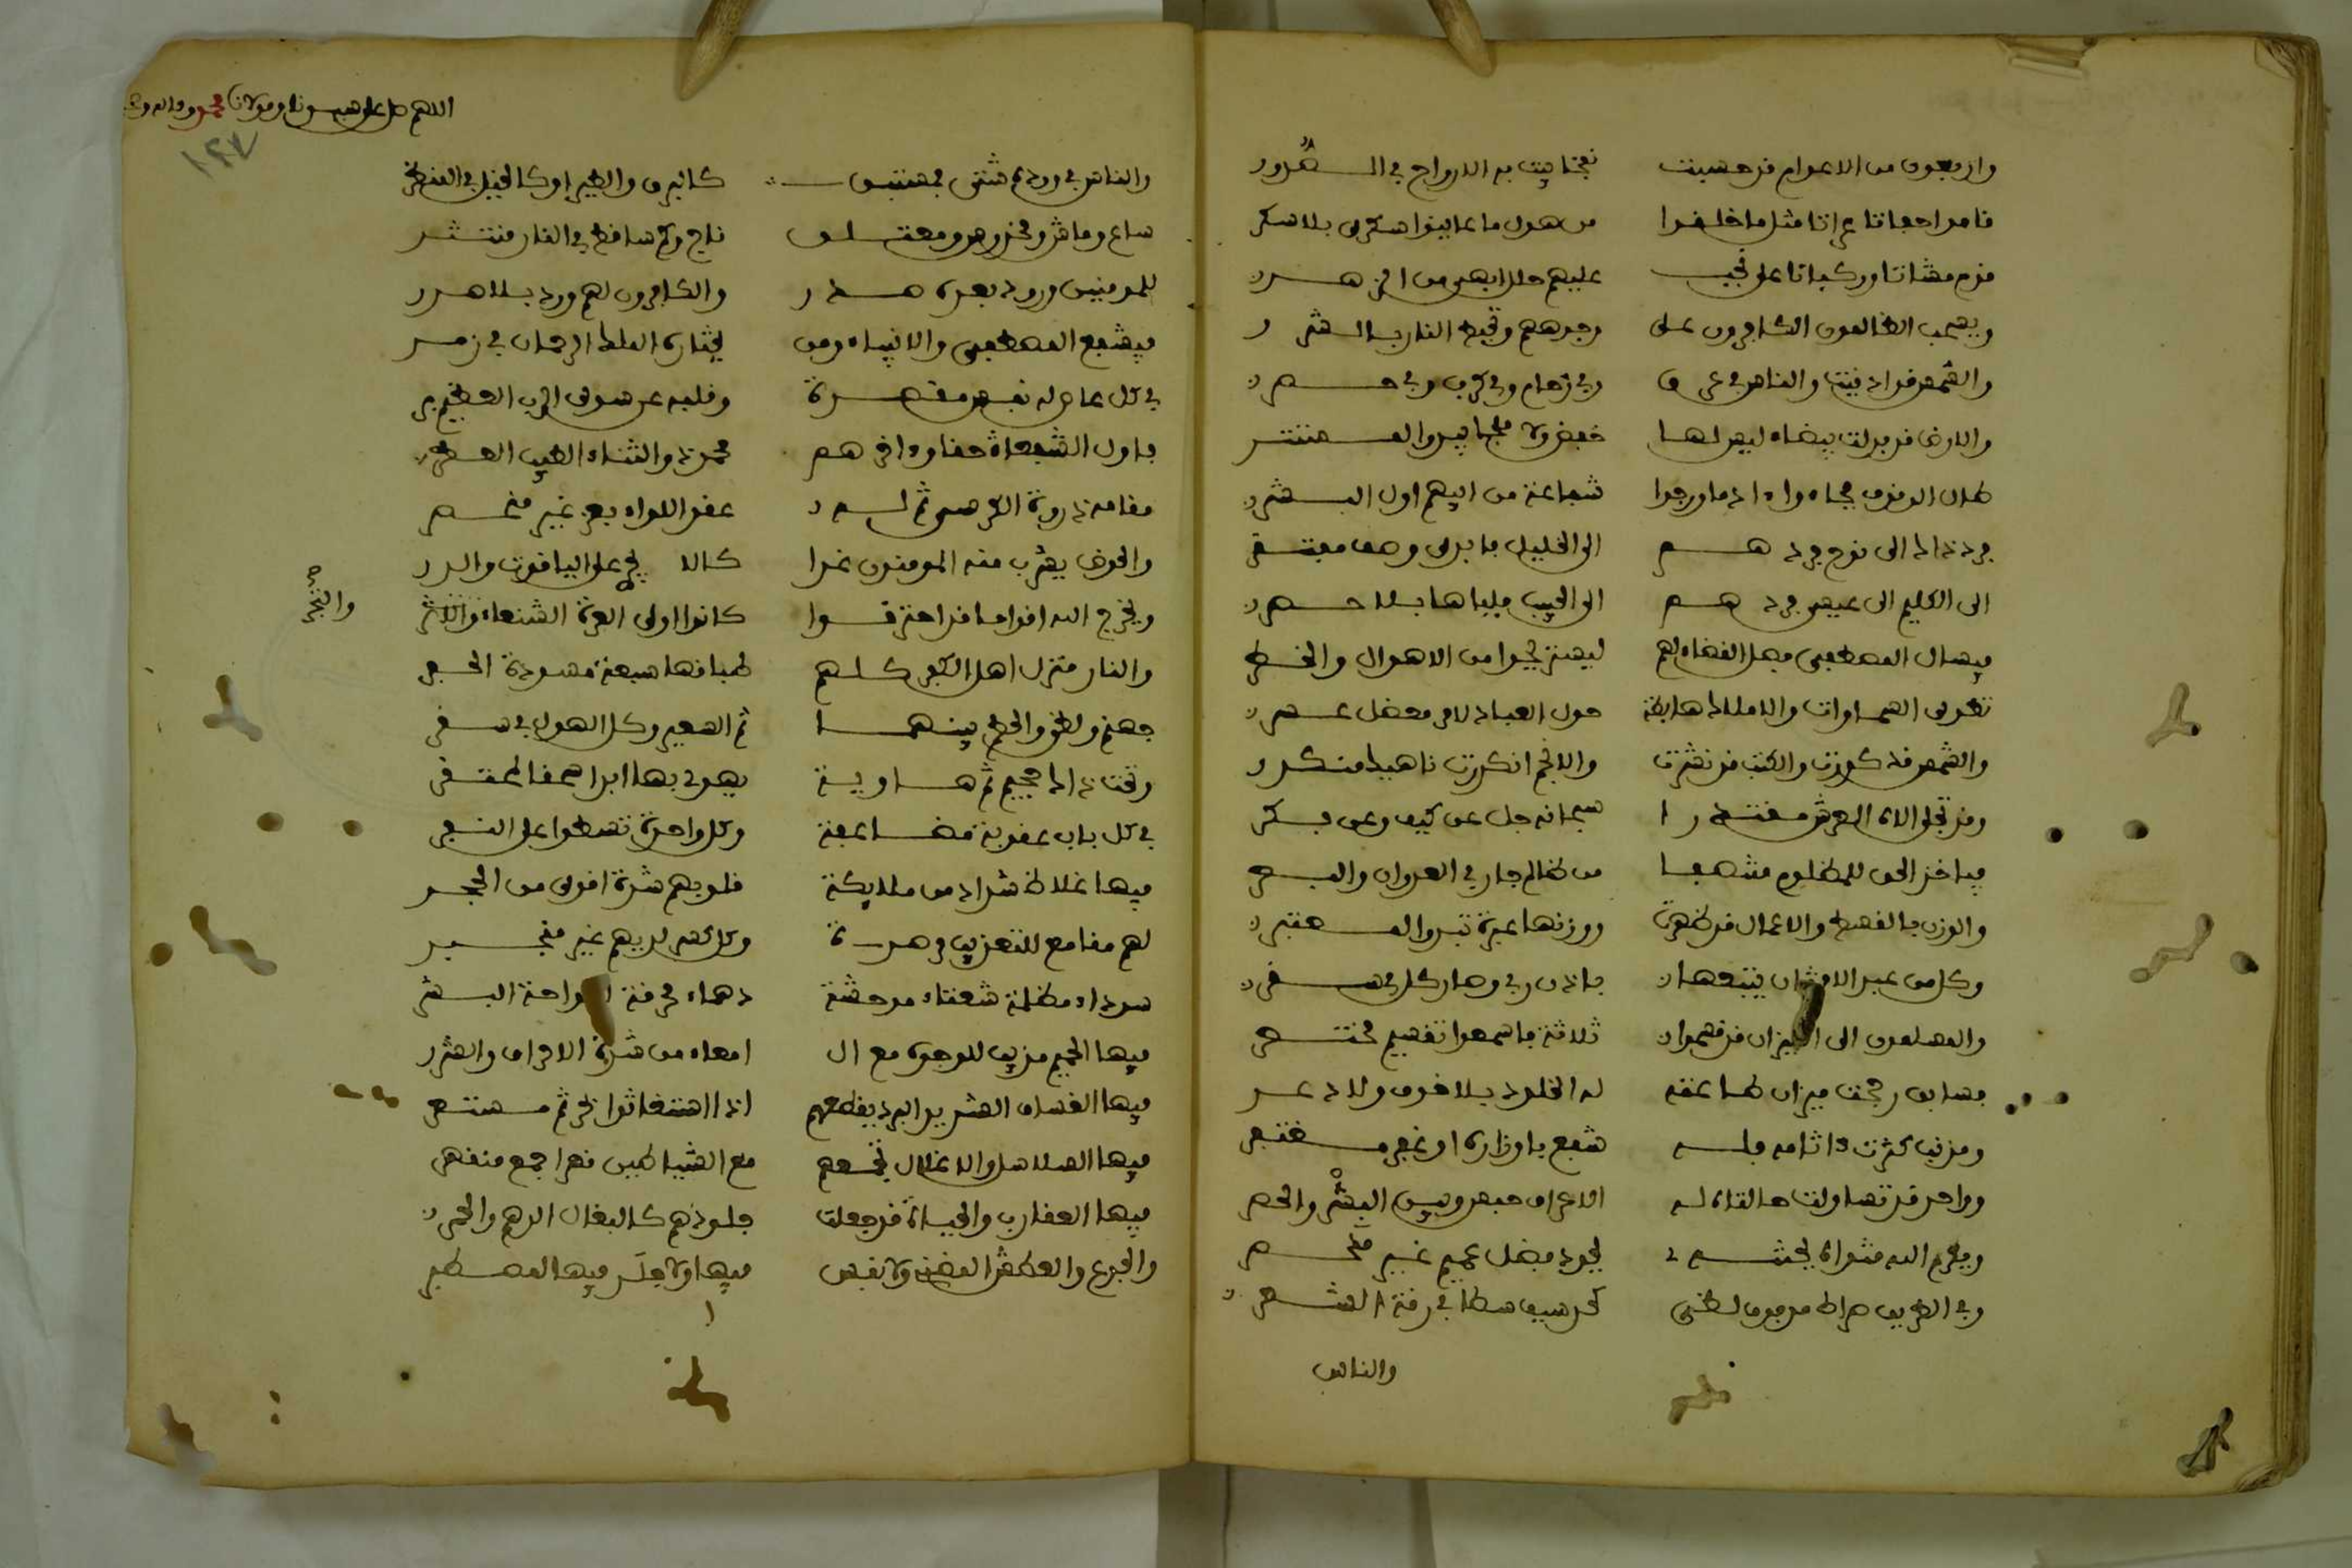 واربعون من الاعوام قد حسبت نفخا يبث به الارواح في الصور
قاموا حفاتا عراتا مثل ما خلقوا من هول ما عاينوا سكرى بلا سكر
قوم مشاتا وركبانا على نجب عليهم حلل ابهى من الزهر
ويسحب الظالمون الكافرون على وجوههم وتحيط النار بالشرر
والشمس قد ادنيت والناس في عرق وفي زحام وفي كرب وفي حصر
والارض قد بدلت بيضاء ليس لها خفض ولا ملجا يبدو المستتر
طال الوقوف فجاءوا ادما ورجوا شفاعة من ابيهم اول البشر
فرد ذاك الى نوح فردهم الى الخليل فابدى وصف مفتقر
الى الكليم الى عيسى فردهم الى الحبيب فلباها بلا حصر
فيسال المصطفى فصل القضاء لهم ليستريحوا من الاهوال والخطر
تطوى السماوات والاملاك هابطة حول العباد لامر معضل عسر
والشمس قد كورت والكتب قد نشرت والانجم انكدرت ناهيك من كدر
وقد تجلى الاه العرش مقتدرا سبحانه جل عن كيف وعن فكر
فياخذ الحق للمظلوم منتصفا من ظالم جار في العدوان والبطر
والوزن بالقسط والاعمال قد ظهرت ووزنها عبرة تبدو المعتبر
وكل من عبد الاوثان يتبعها باذن ربي وصار الكل في سقر
والمسلمون الى الميزان قد قسموا ثلاثة فاسمعوا تقسيم مختصر
فسابق رجحت ميزان طاعته له الخلود بلا خوف ولا دعر
ومذنب كثرت اثامه فله شفع باوزاره او عفو مغتفر
وواحد قد تساوت حالتاه له الاعراف حبس وبين البشر والحصر
ويكرم الله مثواه بجنته بجود فضل عميم غير منحصر
وفي الطريق صراط مد فوق لظى كحد سيف سطا في رقة الشعر
والناس
اللهم صل على سيدنا ومولانا محمد وءاله
١٢٧
والناس في ورده شتى فمستبق كالبرق والطير او كالخيل في النظر
ساع وماش ومخدوش ومعتلق ناج وكم ساقط في النار منتثر
للمومنين ورود بعده صدر والكافرون لهم ورد بلا صدر
فيشفع المصطفى والانبياء ومن يختاره الملك الرحمان في زمر
في كل عاص له نفس مقصرة وقلبه عن سوى الرب العظيم بر
فاول الشفعاء حقا وءاخرهم محمد ذو الثناء الطيب العطر
مقامه ذروة الكرسي ثم له عقد اللواء بعز غير منحصر
والحوض يشرب منه المومنون غدا يجري على الياقوت والدرر
ويخرج الله اقواما قد احترقوا كانوا اولى العزة الشنعاء
والنجر صح
والنار منزل اهل الكفر كلهم طباقها سبعة مسودة الحفر
جهنم ولظى والحطم بينهما ثم السعير وكل الهول في سقر
وتحت ذاك جحيم ثم هاوية يهوي بها ابدا سحقا لمحتقر
في كل باب عقوبة مضاعفة وكل واحدة تسطوا على النفر
فيها غلاظ شداد من ملايكة قلوبهم شدة اقوى من الحجر
لهم مقامع للتعذيب مرصدة وكل كسر لديهم غير منجبر
سوداء مظلمة شعثاء موحشة دهماء محرقة لواحة البشر
فيها الحميم مذيب للوجوه مع ال امعاء من شدة الاحراق والشرر
فيها الغساق الشديد البرد يقطعهم اذا استغاثوا بحر ثم مستعر
فيها السلاسل والاغلال تجمعهم مع الشياطين قسرا جمع منقهر
فيها العقارب والحيات قد جعلت جلودهم كالبغال الدهم والحمر
والجوع والعطش المضني ولا نفس فيها ولا جلد فيها لمصطبر